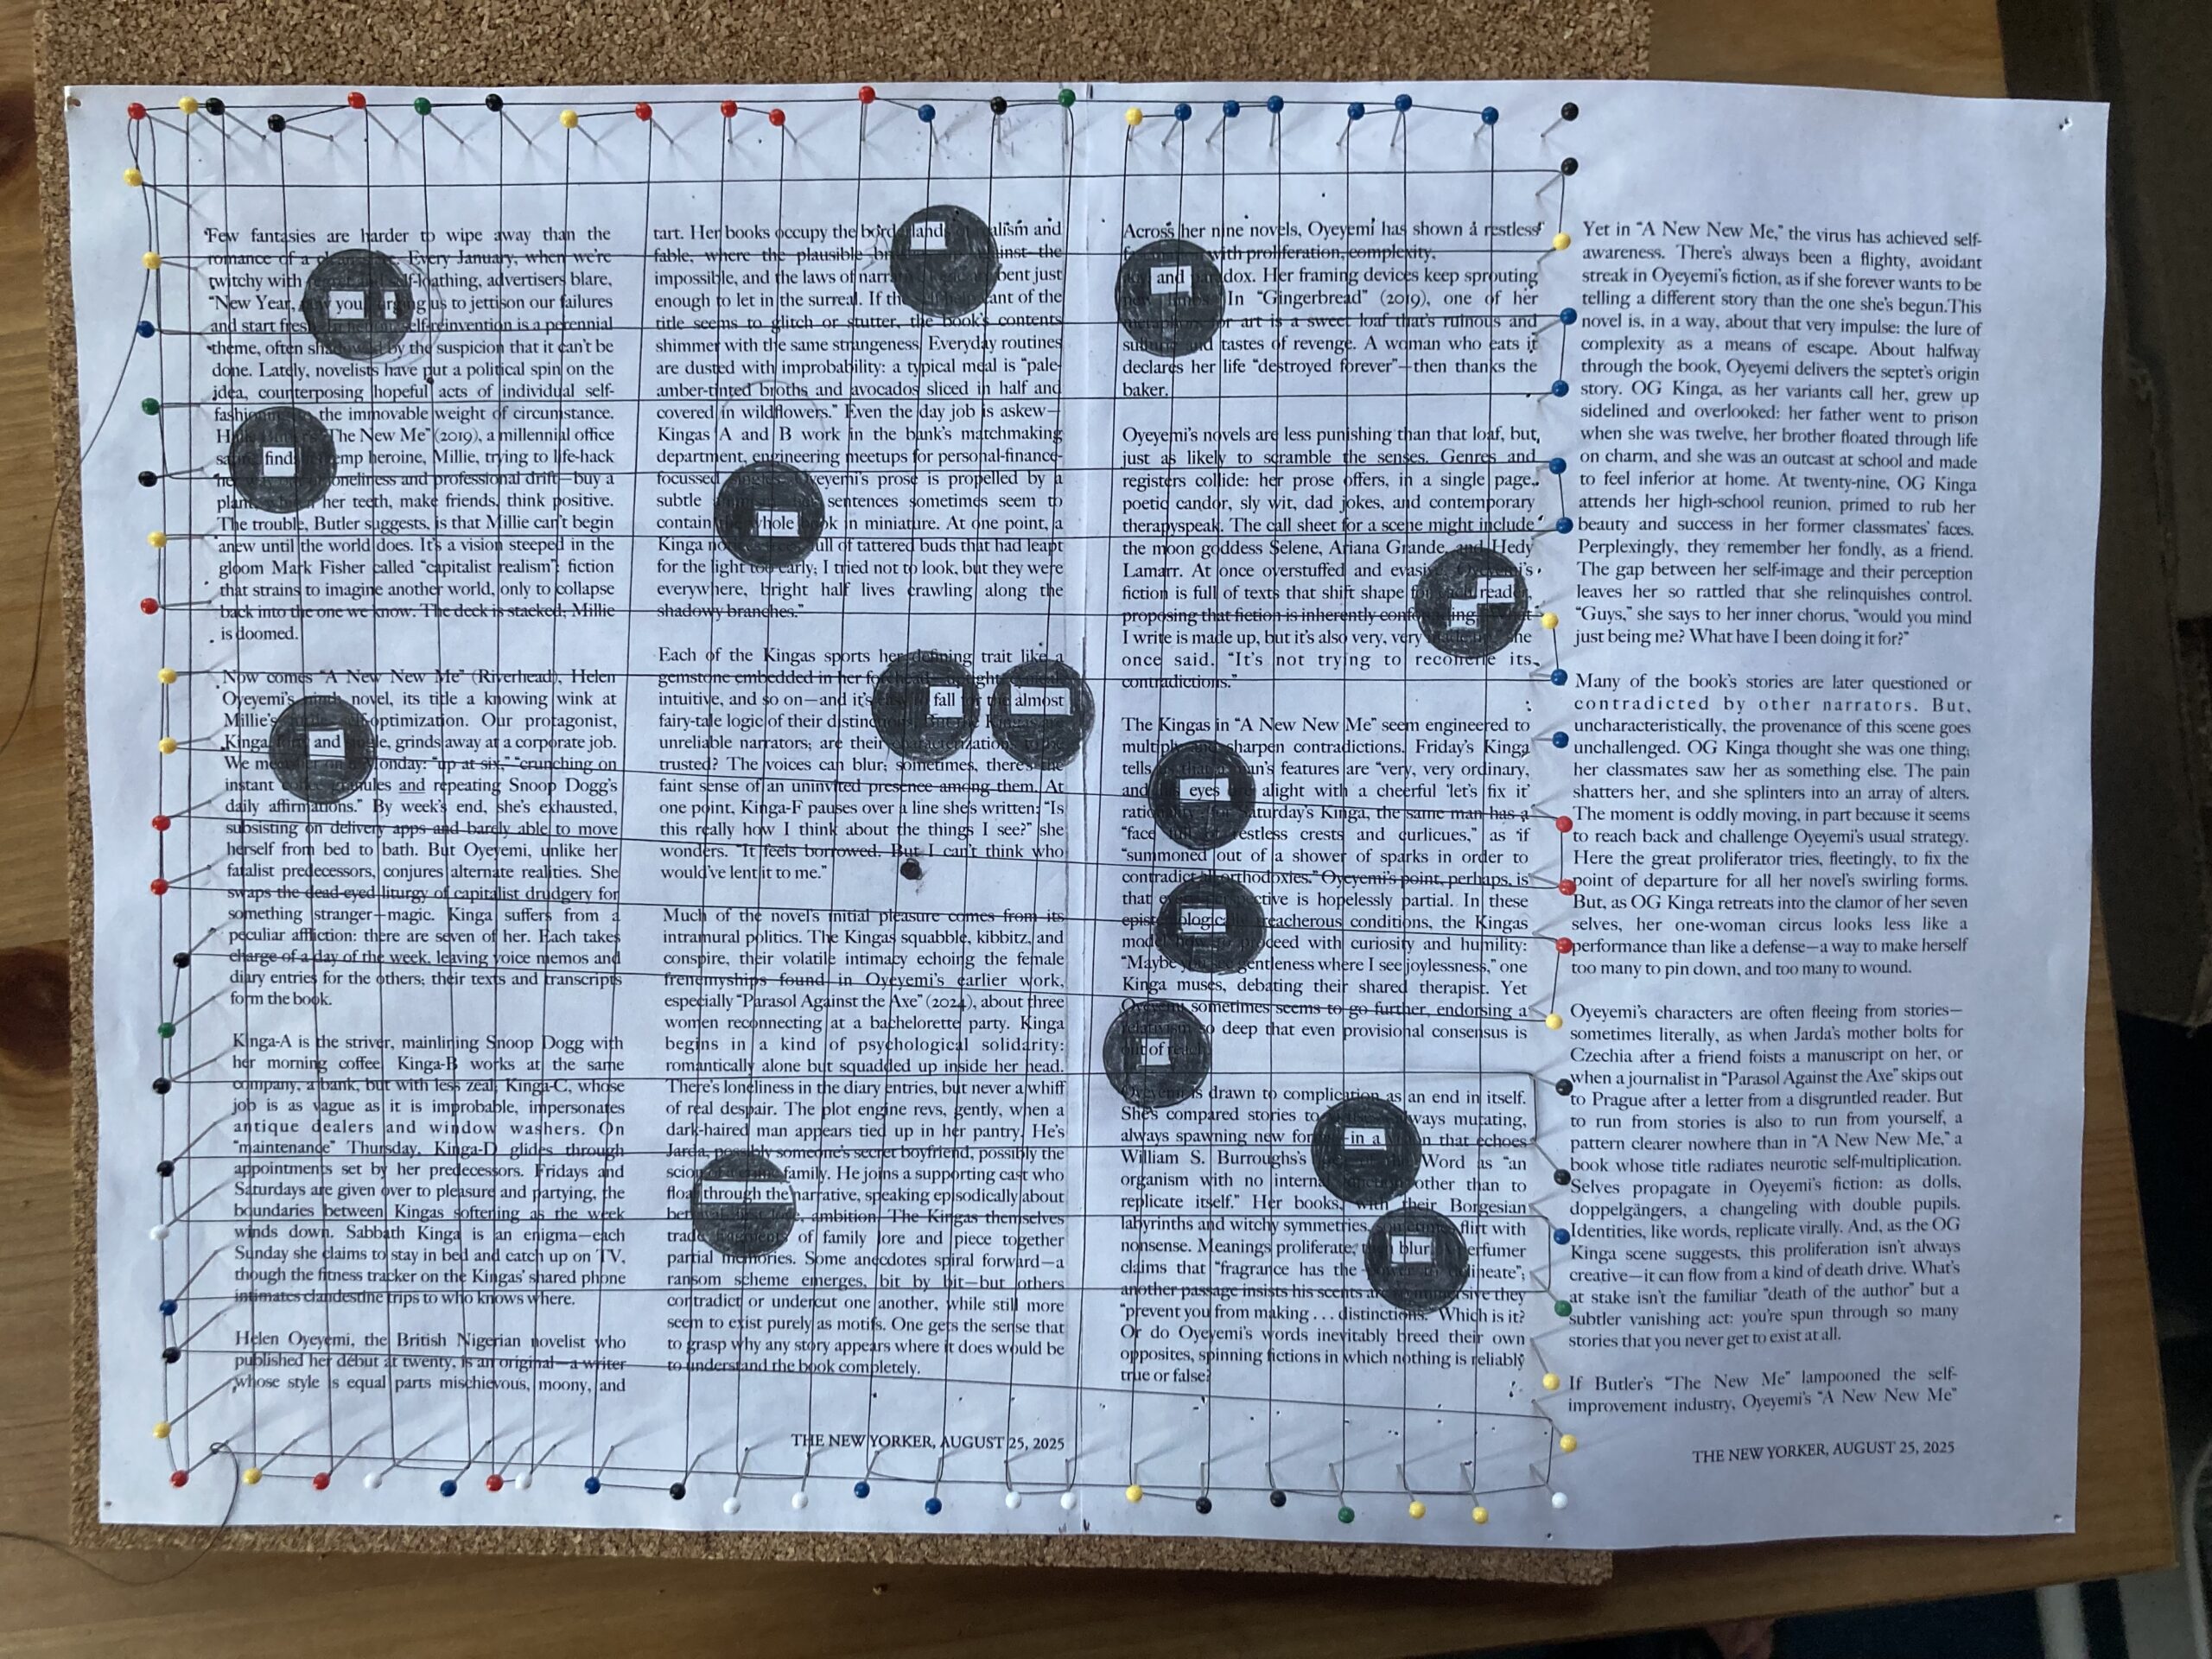 Few fantasies are harder to wipe away than the
romance of a Every January, when we're
twitchy with self-loathing, advertisers blare,
"New Year, you urging us to jettison our failures
and start self-reinvention is a perennial
theme, often by the suspicion that it can't be
done. Lately, novelists have put a political spin on the
idea, counterposing hopeful acts of individual self-
the immovable weight of circumstance.
"The New Me" (2019), a millennial office
finds heroine, Millie, trying to life-hack
loneliness and professional drift—buy a
her teeth, make friends, think positive.
The trouble, Butler suggests, is that Millie can't begin
anew until the world does. It's a vision steeped in the
gloom Mark Fisher called "capitalist realism": fiction
that strains to imagine another world, only to collapse
back into the one we know. The deck is stacked; Millie
is doomed.
Now comes "A New New Me" (Riverhead), Helen
Oyeyemi's novel, its title a knowing wink at
Millie's optimization. Our protagonist,
Kinga, and grinds away at a corporate job.
We Monday: "up at six," "crunching on
instant granules and repeating Snoop Dogg's
daily affirmations." By week's end, she's exhausted,
subsisting on delivery apps and barely able to move
herself from bed to bath. But Oyeyemi, unlike her
fatalist predecessors, conjures alternate realities. She
swaps the dead-eyed liturgy of capitalist drudgery for
something stranger—magic. Kinga suffers from a
peculiar affliction: there are seven of her. Each takes
charge of a day of the week, leaving voice memos and
diary entries for the others; their texts and transcripts
form the book.
Kinga-A is the striver, mainlining Snoop Dogg with
her morning coffee. Kinga-B works at the same
company, a bank, but with less zeal; Kinga-C, whose
job is as vague as it is improbable, impersonates
antique dealers and window washers. On
"maintenance" Thursday, Kinga-D glides through
appointments set by her predecessors. Fridays and
Saturdays are given over to pleasure and partying, the
boundaries between Kingas softening as the week
winds down. Sabbath Kinga is an enigma—each
Sunday she claims to stay in bed and catch up on TV,
though the fitness tracker on the Kingas' shared phone
intimates clandestine trips to who knows where.
Helen Oyeyemi, the British Nigerian novelist who
published her début at twenty, is an original—a writer
whose style is equal parts mischievous, moony, and
tart. Her books occupy the land and
fable, where the plausible the
impossible, and the laws of bent just
enough to let in the surreal. If the of the
title seems to glitch or stutter, the book's contents
shimmer with the same strangeness. Everyday routines
are dusted with improbability: a typical meal is "pale-
amber-tinted broths and avocados sliced in half and
covered in wildflowers." Even the day job is askew—
Kingas A and B work in the bank's matchmaking
department, engineering meetups for personal-finance-
focussed Oyeyemi's prose is propelled by a
subtle sentences sometimes seem to
contain whole in miniature. At one point, a
Kinga full of tattered buds that had leapt
for the light too early; I tried not to look, but they were
everywhere, bright half lives crawling along the
shadowy branches."
Each of the Kingas sports her defining trait like a
gemstone embedded in her
intuitive, and so on—and it's fall for the almost
fairy-tale logic of their
unreliable narrators; are their characterizations to be
trusted? The voices can blur; sometimes, there's the
faint sense of an uninvited presence among them. At
one point, Kinga-F pauses over a line she's written: "Is
this really how I think about the things I see?" she
wonders. "It feels borrowed. But I can't think who
would've lent it to me."
Much of the novel's initial pleasure comes from its
intramural politics. The Kingas squabble, kibbitz, and
conspire, their volatile intimacy echoing the female
frenemyships found in Oyeyemi's earlier work,
especially "Parasol Against the Axe" (2024), about three
women reconnecting at a bachelorette party. Kinga
begins in a kind of psychological solidarity:
romantically alone but squadded up inside her head.
There's loneliness in the diary entries, but never a whiff
of real despair. The plot engine revs, gently, when a
dark-haired man appears tied up in her pantry. He's
Jarda, possibly someone's secret boyfriend, possibly the
scion family. He joins a supporting cast who
float through the narrative, speaking episodically about
ambition. The Kingas themselves
trade fragments of family lore and piece together
partial memories. Some anecdotes spiral forward—a
ransom scheme emerges, bit by bit—but others
contradict or undercut one another, while still more
seem to exist purely as motifs. One gets the sense that
to grasp why any story appears where it does would be
to understand the book completely.
THE NEW YORKER, AUGUST 25, 2025
Across her nine novels, Oyeyemi has shown a restless
with proliferation, complexity,
and paradox. Her framing devices keep sprouting
In "Gingerbread" (2019), one of her
for art is a sweet loaf that's ruinous and
and tastes of revenge. A woman who eats it
declares her life "destroyed forever"—then thanks the
baker.
Oyeyemi's novels are less punishing than that loaf, but,
just as likely to scramble the senses. Genres and
registers collide: her prose offers, in a single page,
poetic candor, sly wit, dad jokes, and contemporary
therapyspeak. The call sheet for a scene might include
the moon goddess Selene, Ariana Grande, and Hedy
Lamarr. At once overstuffed and evasive, Oyeyemi's
fiction is full of texts that shift shape for each reader,
proposing that fiction is inherently
I write is made up, but it's also very, very she
once said. "It's not trying to reconcile its
contradictions."
The Kingas in "A New New Me" seem engineered to
multiply and sharpen contradictions. Friday's Kinga
tells features are "very, very ordinary,
and eyes alight with a cheerful 'let's fix it'
Saturday's Kinga, the same man has a
"face restless crests and curlicues," as if
"summoned out of a shower of sparks in order to
contradict all orthodoxies." Oyeyemi's point, perhaps, is
that is hopelessly partial. In these
treacherous conditions, the Kingas
model proceed with curiosity and humility:
"Maybe you see gentleness where I see joylessness," one
Kinga muses, debating their shared therapist. Yet
Oyeyemi sometimes seems to go further, endorsing a
relativism so deep that even provisional consensus is
out of reach.
Oyeyemi is drawn to complication as an end in itself.
She's compared stories to always mutating,
always spawning new —in a that echoes
William S. Burroughs's Word as "an
organism with no internal other than to
replicate itself." Her books, with their Borgesian
labyrinths and witchy symmetries, flirt with
nonsense. Meanings proliferate, then blur. A perfumer
claims that "fragrance has the delineate";
another passage insists his scents are they
"prevent you from making . . . distinctions." Which is it?
Or do Oyeyemi's words inevitably breed their own
opposites, spinning fictions in which nothing is reliably
true or false?
Yet in "A New New Me," the virus has achieved self-
awareness. There's always been a flighty, avoidant
streak in Oyeyemi's fiction, as if she forever wants to be
telling a different story than the one she's begun.This
novel is, in a way, about that very impulse: the lure of
complexity as a means of escape. About halfway
through the book, Oyeyemi delivers the septet's origin
story. OG Kinga, as her variants call her, grew up
sidelined and overlooked: her father went to prison
when she was twelve, her brother floated through life
on charm, and she was an outcast at school and made
to feel inferior at home. At twenty-nine, OG Kinga
attends her high-school reunion, primed to rub her
beauty and success in her former classmates' faces.
Perplexingly, they remember her fondly, as a friend.
The gap between her self-image and their perception
leaves her so rattled that she relinquishes control.
"Guys," she says to her inner chorus, "would you mind
just being me? What have I been doing it for?"
Many of the book's stories are later questioned or
contradicted by other narrators. But,
uncharacteristically, the provenance of this scene goes
unchallenged. OG Kinga thought she was one thing;
her classmates saw her as something else. The pain
shatters her, and she splinters into an array of alters.
The moment is oddly moving, in part because it seems
to reach back and challenge Oyeyemi's usual strategy.
Here the great proliferator tries, fleetingly, to fix the
point of departure for all her novel's swirling forms.
But, as OG Kinga retreats into the clamor of her seven
selves, her one-woman circus looks less like a
performance than like a defense—a way to make herself
too many to pin down, and too many to wound.
Oyeyemi's characters are often fleeing from stories—
sometimes literally, as when Jarda's mother bolts for
Czechia after a friend foists a manuscript on her, or
when a journalist in "Parasol Against the Axe" skips out
to Prague after a letter from a disgruntled reader. But
to run from stories is also to run from yourself, a
pattern clearer nowhere than in "A New New Me," a
book whose title radiates neurotic self-multiplication.
Selves propagate in Oyeyemi's fiction: as dolls,
doppelgängers, a changeling with double pupils.
Identities, like words, replicate virally. And, as the OG
Kinga scene suggests, this proliferation isn't always
creative—it can flow from a kind of death drive. What's
at stake isn't the familiar "death of the author" but a
subtler vanishing act: you're spun through so many
stories that you never get to exist at all.
If Butler's "The New Me" lampooned the self-
improvement industry, Oyeyemi's "A New New Me"
THE NEW YORKER, AUGUST 25, 2025